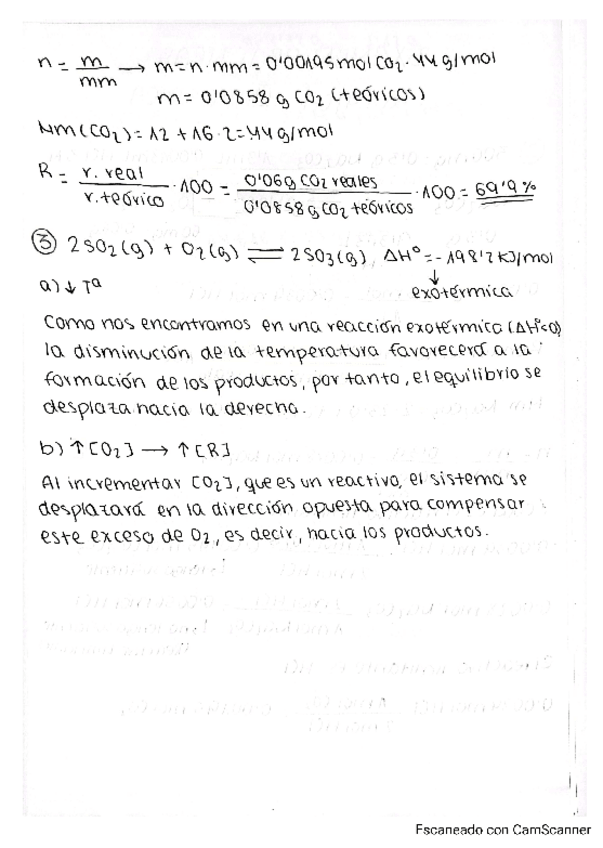 n = m/mm → m = n · mm = 0'00195 mol CO₂ · 44 g/mol
m = 0'0858 g CO₂ (teóricos)
Mm (CO₂) = 12 + 16 · 2 = 44 g/mol
R = r. real/r. teórico · 100 = 0'06 g CO₂ reales/0'0858 g CO₂ teóricos · 100 = 69'9 %
③ 2SO₂(g) + O₂(g) ⇌ 2SO₃(g), ΔH° = -198'2 KJ/mol
↓
a) ↓ Tª exotérmica
Como nos encontramos en una reacción exotérmica (ΔH°<0)
la disminución de la temperatura favorecerá a la
formación de los productos, por tanto, el equilibrio se
desplaza hacia la derecha.
b) ↑ [O₂] → ↑ [R]
Al incrementar [O₂], que es un reactivo, el sistema se
desplazará en la dirección opuesta para compensar
este exceso de O₂, es decir, hacia los productos.
Escaneado con CamScanner